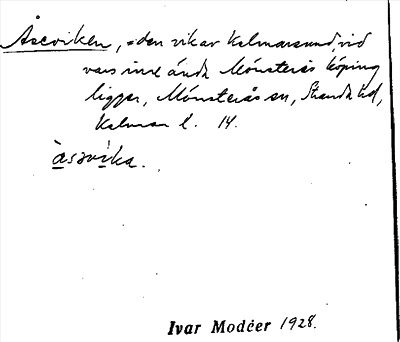 Åseviken, = den vik av Kalmarsund, vid
vars inre ända Mönsterås köping
ligger, Mönsterås sn, Stranda hd,
Kalmar l. 14.
àsəvika.
Ivar Modéer 1928.